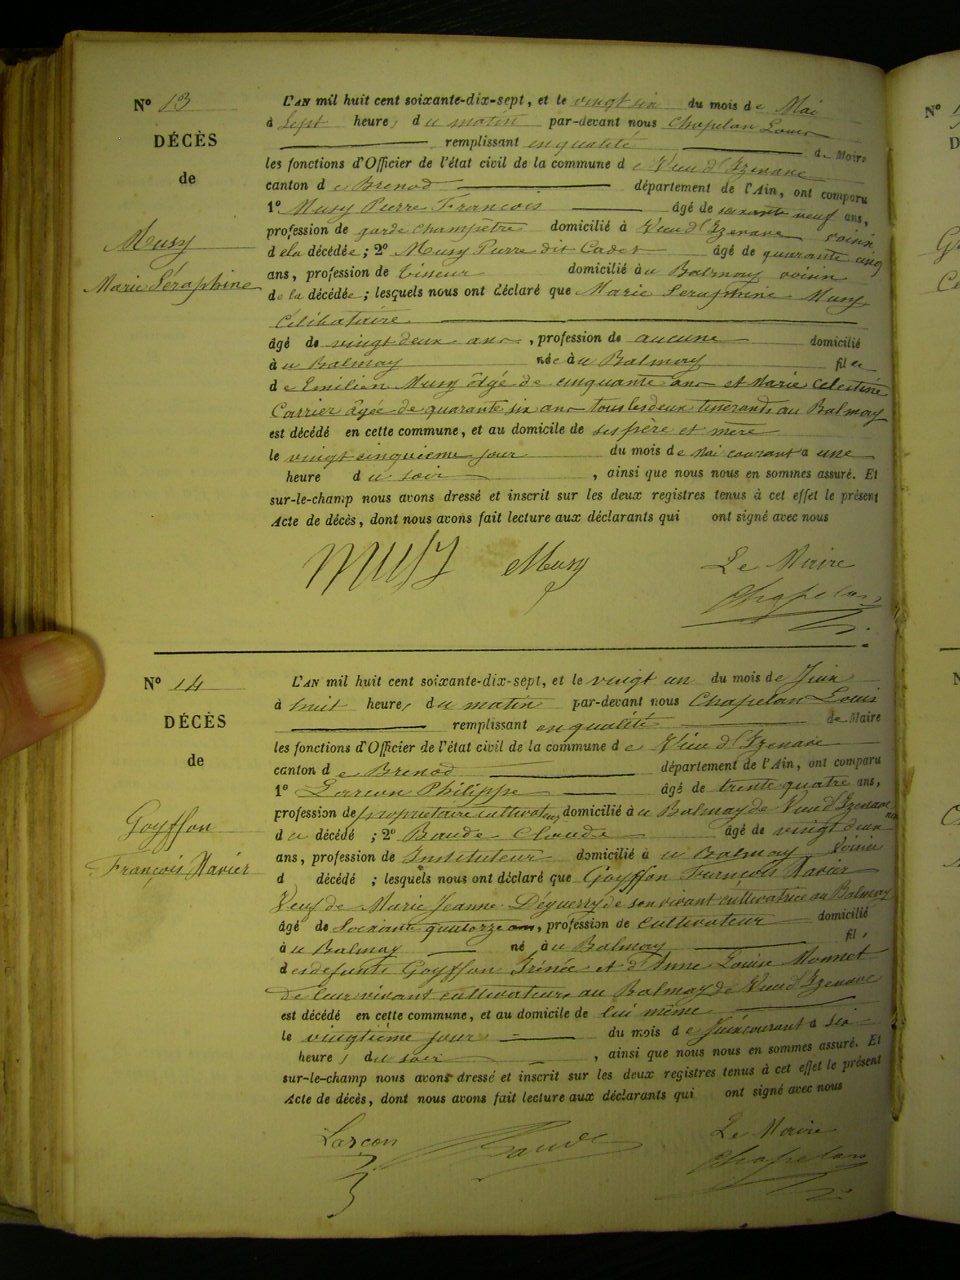 N° 13
DÉCÈS
de
Musy
Marie Séraphine
L'AN mil huit cent soixante-dix-sept, et le vingt six du mois de Mai
à Sept heures du matin par-devant nous Chapelan Louis
remplissant en qualité de Maire
les fonctions d'Officier de l'état civil de la commune de Vieu d'Izenave
canton de Brenod département de l'Ain, ont comparu
1° Musy Pierre François âgé de soixante neuf ans,
profession de garde champêtre domicilié à Vieu d'Izenave voisin
de la décédée; 2° Musy Pierre dit Cadet âgé de quarante cinq
ans, profession de domicilié au Balmay voisin
de la décédée; lesquels nous ont déclaré que Marie Seraphine Musy
Célibataire
âgé de vingt deux ans, profession de aucune domicilié
au Balmay née au Balmay fille
de Emilien Musy âgé de cinquante ans et Marie Celestine
Carrier âgée de quarante six ans tous les deux au Balmay
est décédé en cette commune, et au domicile de ses père et mère
le vingt cinquième jour du mois de Mai courant à une
heure du soir, ainsi que nous nous en sommes assuré. Et
sur-le-champ nous avons dressé et inscrit sur les deux registres tenus à cet effet le présent
Acte de décès, dont nous avons fait lecture aux déclarants qui ont signé avec nous
MUSY Musy Le Maire
Chapelan
N° 14
DÉCÈS
de
Goyffon
François Xavier
L'AN mil huit cent soixante-dix-sept, et le vingt un du mois de Juin
à huit heures du matin par-devant nous Chapelan Louis
remplissant en qualité de Maire
les fonctions d'Officier de l'état civil de la commune de Vieu d'Izenave
canton de Brenod département de l'Ain, ont comparu
1° Larçon Philippe âgé de trente quatre ans,
profession de propriétaire cultivateur domicilié au Balmay de Vieu d'Izenave
du décédé; 2° Baude Claude âgé de vingt deux
ans, profession de Instituteur domicilié à au Balmay voisin
d décédé; lesquels nous ont déclaré que Goyffon François Xavier
Veuf de Marie Jeanne Deguerry de son vivant cultivatrice au Balmay
âgé de Soixante quatorze ans, profession de Cultivateur domicilié
au Balmay né au Balmay fils
des defunts Goyffon Irénée et d'Anne Louise Monnet
de leur vivant cultivateurs au Balmay de Vieu d'Izenave
est décédé en cette commune, et au domicile de lui même
le vingtième jour du mois de Juin courant à six
heures du soir, ainsi que nous nous en sommes assuré. Et
sur-le-champ nous avons dressé et inscrit sur les deux registres tenus à cet effet le présent
Acte de décès, dont nous avons fait lecture aux déclarants qui ont signé avec nous
Larçon Baude Le Maire
Chapelan